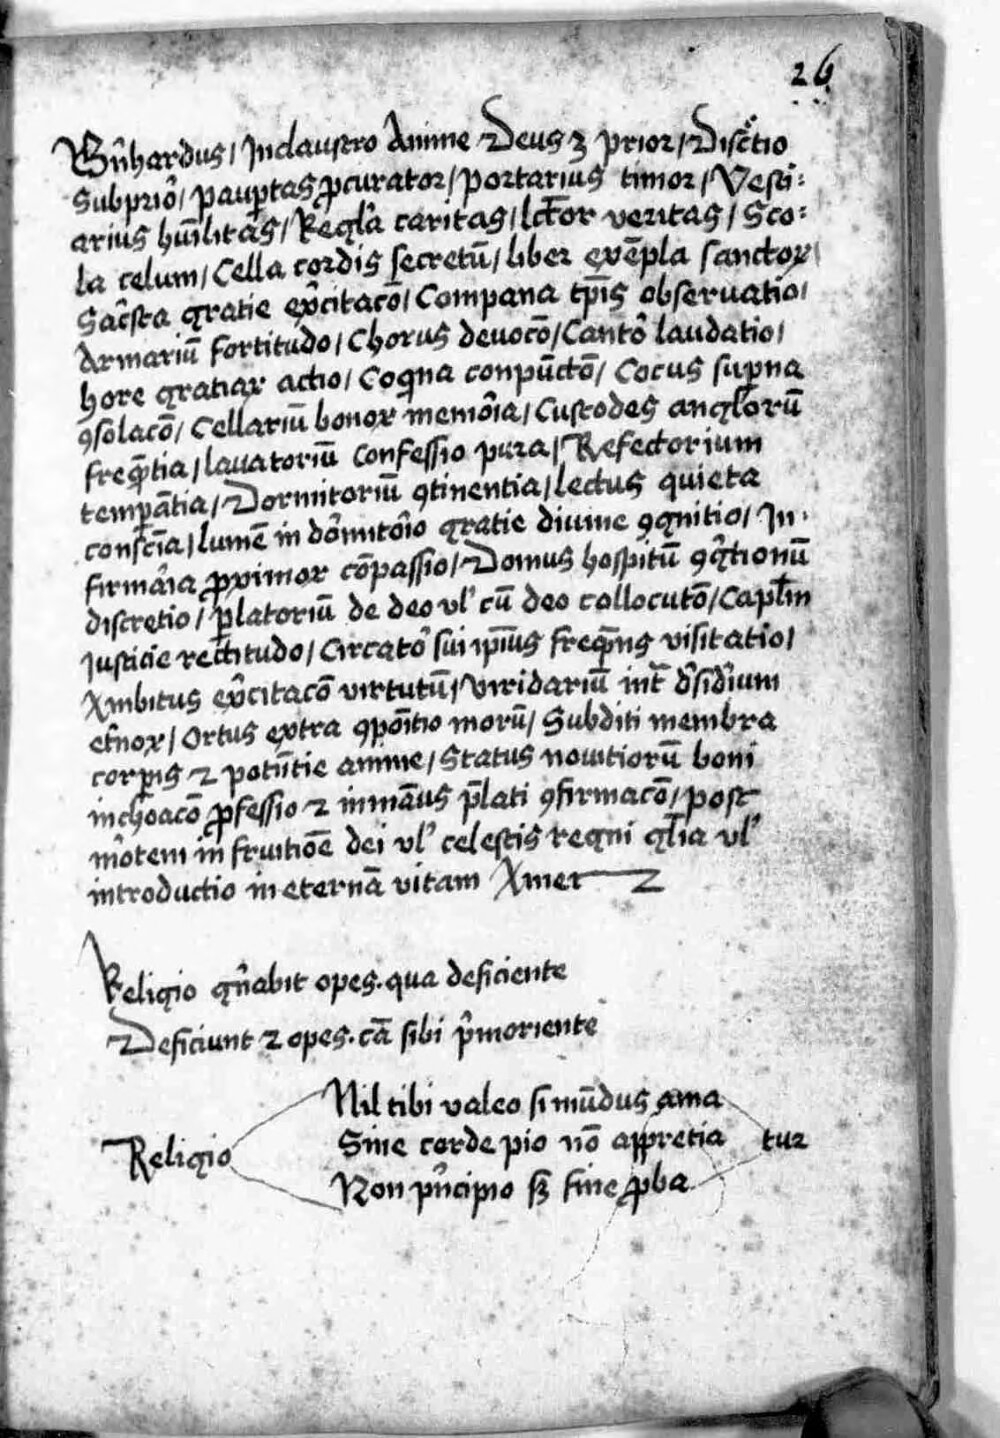 26
Bn̄hardus / In claustro Anime Deus ꝫ prior / Disc̄tio
Subprio᷑ / paup̱tas ꝓcurator / portarius timor / Vesti⸗
arius hūilitas / Regl̓a caritas / lc̄tor veritas / Sco⸗
la celum / Cella cordis secretū / liber exēpla sanctoꝝ /
Sac̄sta gratie ex̓citacō / Compana tp̄is obseruatio /
Armariū fortitudo / Chorus deuocō / Canto᷑ laudatio /
hore gratiaꝝ actio / Coqina conpūctō / Cocus suꝑna
ꝯsolacō / Cellariū bonoꝝ memo᷑ia / Custodes angl̓orū
freqn̄tia / lauatoriū confessio pura / Refectorium
temꝑātia / Dormitoriū ꝯtinentia / lectus quieta
conscīa / lumē in do᷑mito᷑io gratie diuine ꝯgnitio / In⸗
firma᷑ia ꝓximoꝝ cōpassio / Domus hospitū ꝯg̓tionū
discretio / p̄latoriū de deo ul̓ cū deo collocutō / Capłm
Justicie rectitudo / Circato᷑ sui ip̄ius freqn̄s visitatio /
Ambitus ex̓citacō virtutū / Viridariū int᷑ d̓sid̓ium
et̓noꝝ / Ortus extra ꝯpōitio morū / Subditi membra
corꝑis ⁊ potn̄tie anime / Status nouitiorū boni
inchoacō ꝓfessio ⁊ in mān̄us p̄lati ꝯfirmacō / post
mo᷑tem in fruitiōe dei ul̓ celestis regni gl̄ia ul̓
introductio in eternā vitam Amen
Religio gn̄abit opes . qua deficiente
Deficiunt ⁊ opes . cā sibi p̓moriente
Nil tibi valeo si mūdus ama
Religio Sine corde pio nō appretia tur
Non pn̓cipio sꝫ fine ꝓba